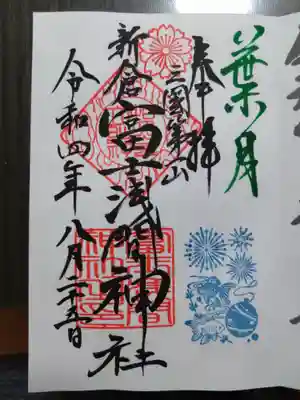 葉月
奉拝
三國第一山
新倉富士浅間神社
令和四年八月二十五日